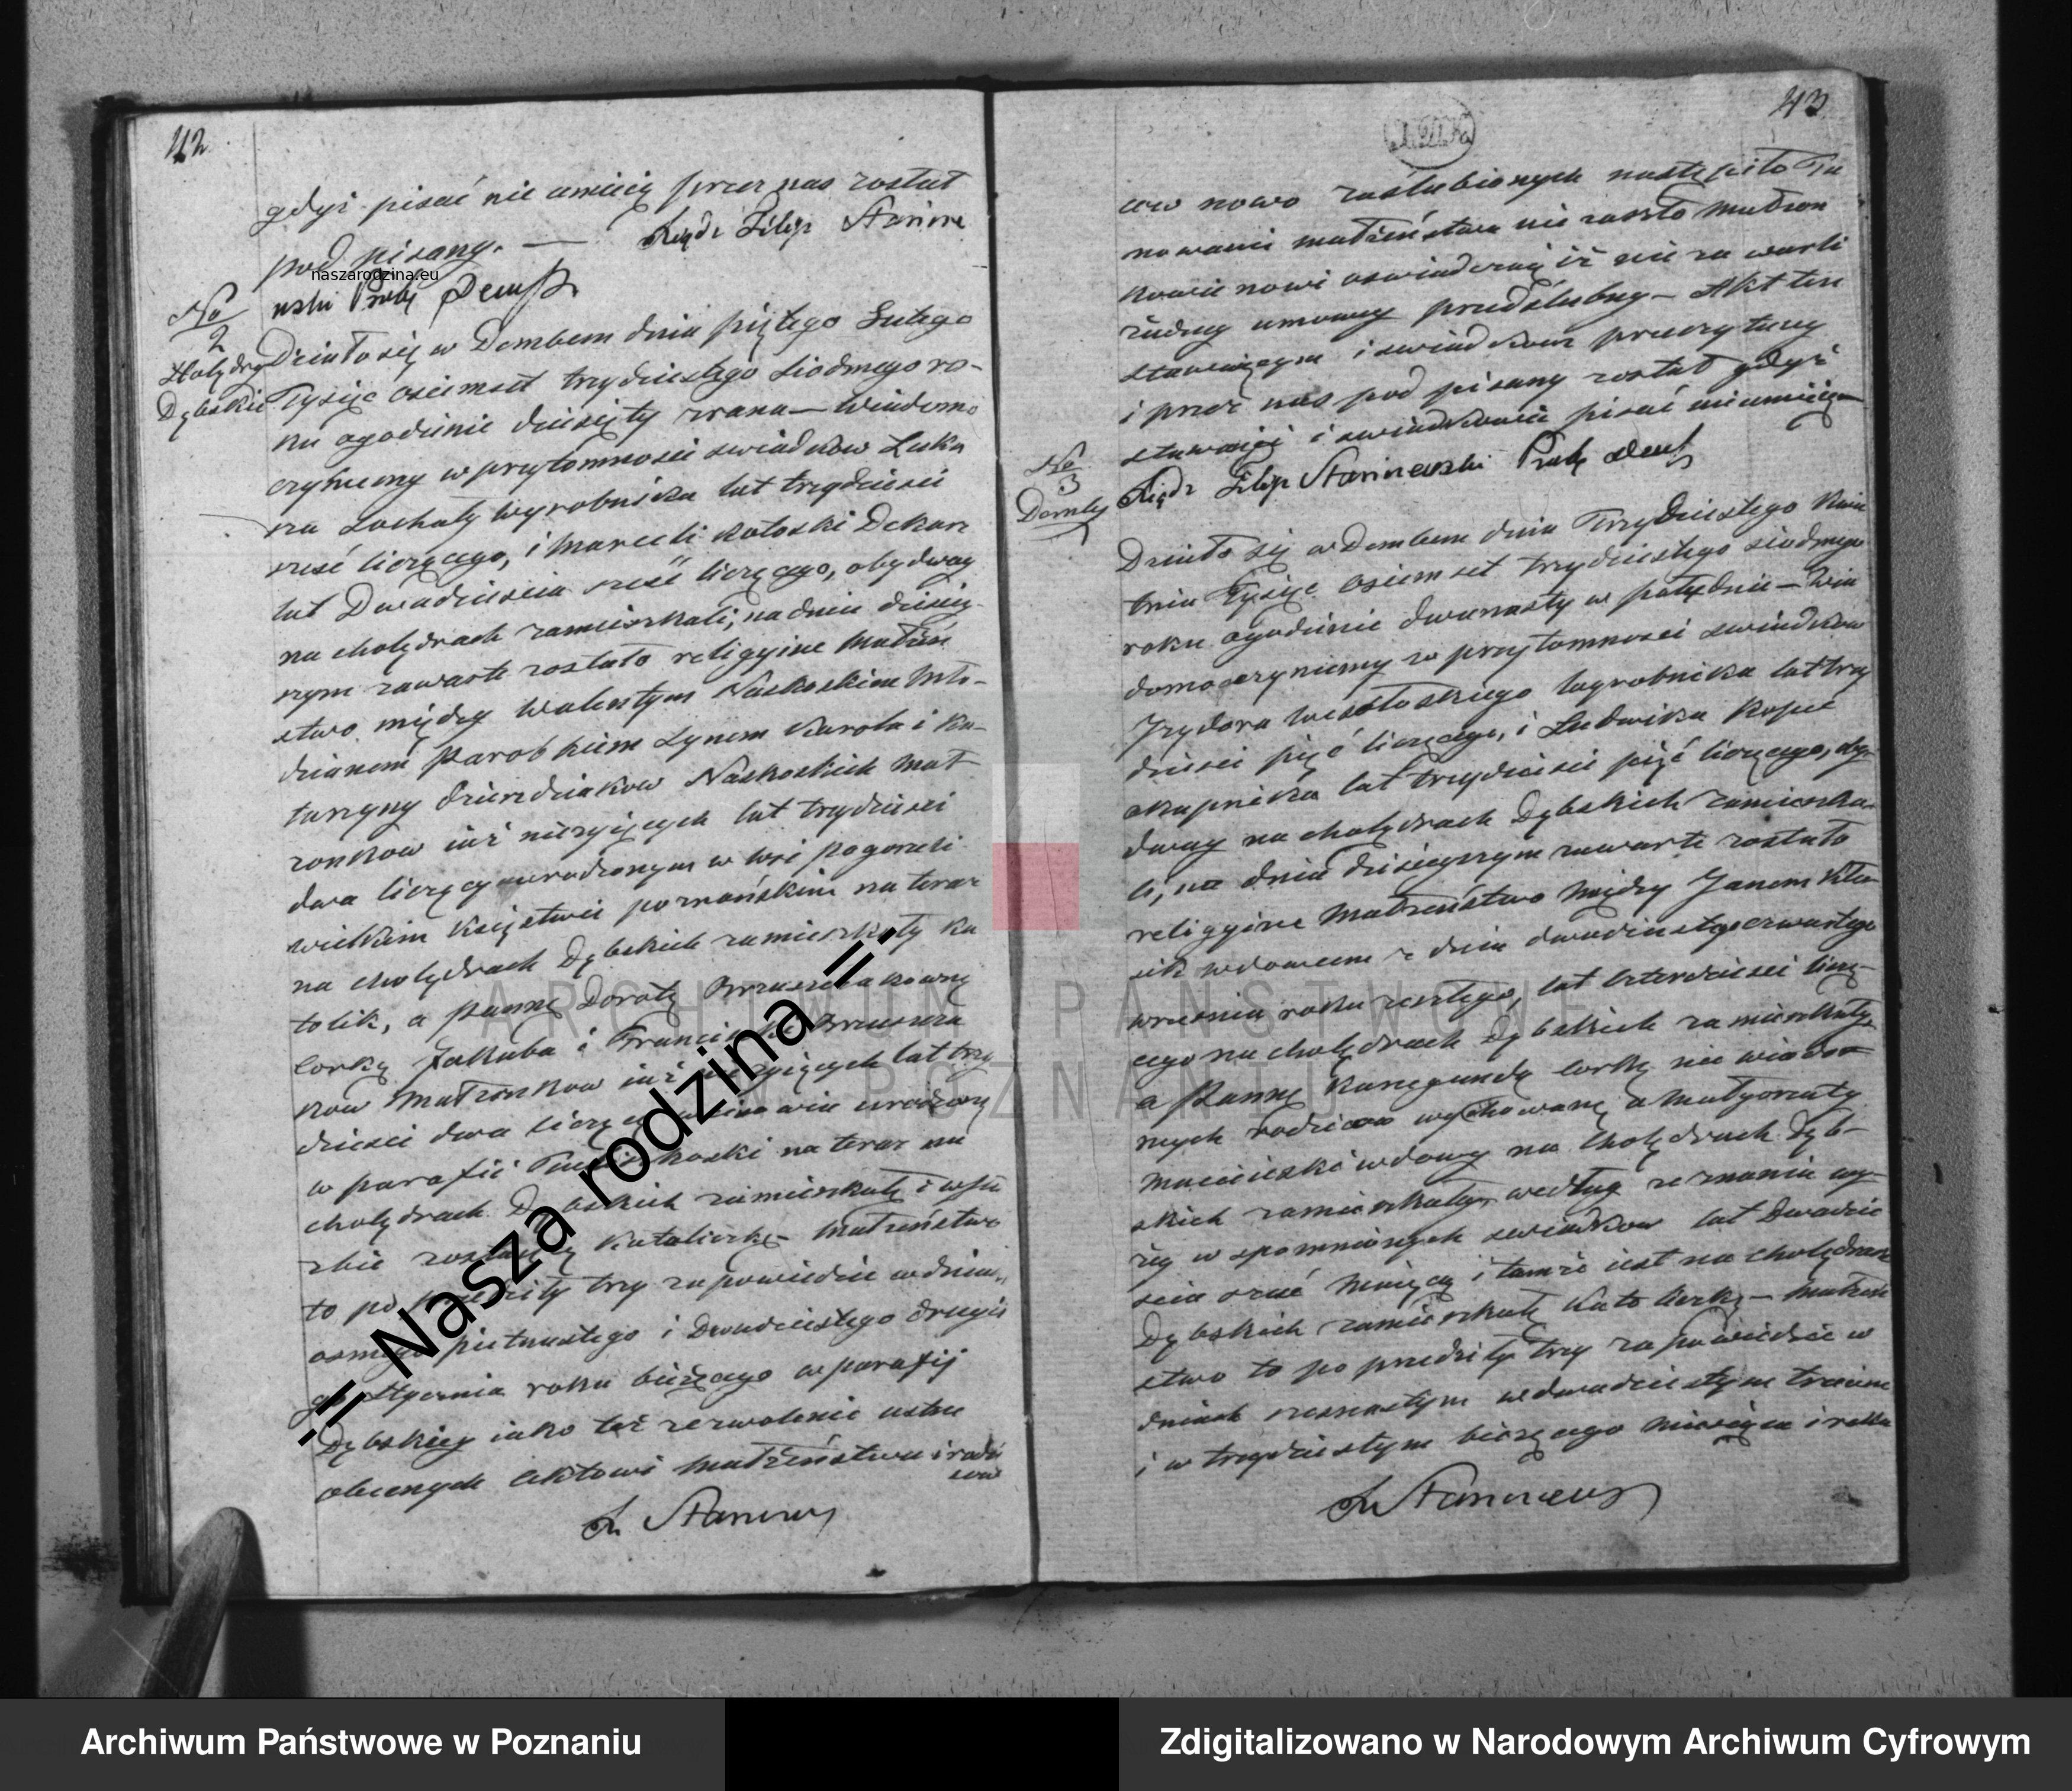 42
gdyż pisać nie umieią przez nas został
podpisany. — Xiądz Filip Starine
wski Prob Demb
No
2
Holędry
Dębskie
Działo się w Dembem dnia piątego Lutego
Tysiąc osiemset trzydziestego siodmego ro-
ku ogodzinie dziesięty zrana — Wiadomo
czyniemy w przytomnosci swiadkow Łuka
sza Sochaty wyrobnika lat trzydziesci
szesć liczącego, i Marceli Kotoski Dekarz
lat Dwadziescia sześć liczącego, obydway
na cholędrach zamieszkali; na dniu dzisiey
szym zawarte zostało religyine Małżeń
stwo między Walentym Naskoskim Mło-
dzianem Parobkiem Synem Karola i Ka-
tarzyny Naskoskich Mał
zonkow iuż nieżyiących lat trzydziesci
dwa liczący urodzonym w wsi pogorzeli
wielkim Księstwie poznańskim na teraz
na cholędrach Dębskich zamieszkały Ka
tolik, a Panną Dorotą
Corką Jakuba i
kow Małżonkow iuż nieżyiących lat trzy
dziesci dwa liczącą urodzoną
w parafii na teraz na
cholędrach Dębskich zamieszkałą i w słu
żbie zostaiącą Katoliczką — Małżeństwo
to poprzedziły trzy zapowiedzie w dniu
osmego piętnastego i Dwudziestego drugie
go Stycznia roku bieżącego w parafij
Dębskiey iako też zezwolenie ustne
obecnych Aktowi Małżeństwa i rodzi
cow
X Starinews
43
ów nowo zaślubionych nastąpiło Ta
mowanie małżeństwa nie zaszło Małżon
kowie nowi oswiadczaią iż nie zawarli
żadny umowy przedślubny — Akt ten
stawaiącym i swiadkom przeczytany
i przez nas pod pisany został gdyż
stawaiący i swiadkowie pisać nieumieią
Xiądz Filip Starinewski Prob Demb
No
3
Demby
Działo się w Dembem dnia Trzydziestego Kwie
tnia Tysiąc Osiemset trzydziestego siodmego
roku ogodzinie dwunasty w południe — Wia
domo czyniemy w przytomnosci swiadkow
Jzydora Wesołoskiego Wyrobnika lat trzy
dziesci pięć liczącego, i Ludwika Kopeć
okupnika lat trzydziesci pięć liczącego, oby-
dway na cholędrach Dębskich zamieszka-
li, na dniu dzisieyszym zawarte zostało
religyine Małżeństwo między Janem
wdowcem z dnia dwudziestego czwartego
wrzesnia roku zeszłego, lat czterdziesci liczą-
cego na cholędrach Dębskich zamieszkały,
a Panną Kunegundą corką nie wiado
mych rodzicow wychowaną u Małgorzaty
wdowy na Cholędrach Dęb-
skich zamieszkały, według zeznania wy
ży wspomnionych swiadkow lat Dwadzie
scia osm maiącą i tamże iest na cholędrach
Dębskich zamieszkałą Katoliczką — Małżeń
stwo to poprzedziły trzy zapowiedzie w
dniach szesnastym w dwudziestym trzecim
i w trzydziestym bieżącego miesiąca i roku
X Starinews
naszarodzina.eu
-= Nasza rodzina =-
ARCHIWUM PAŃSTWOWE
W POZNANIU
Archiwum Państwowe w Poznaniu
Zdigitalizowano w Narodowym Archiwum Cyfrowym